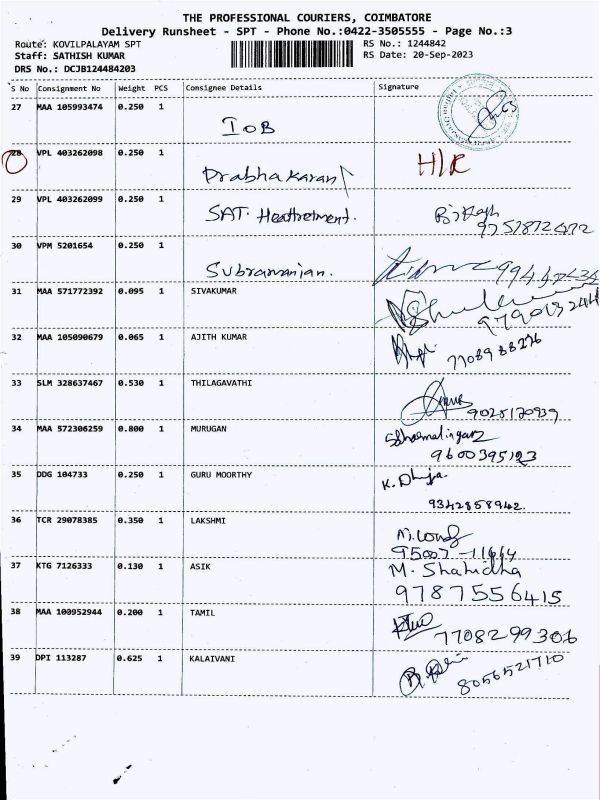 THE PROFESSIONAL COURIERS, COIMBATORE
Delivery Runsheet - SPT - Phone No.:0422-3505555 - Page No.:3
Route: KOVILPALAYAM SPT RS No.: 1244842
Staff: SATHISH KUMAR RS Date: 20-Sep-2023
DRS No.: DCJB124484203
S No Consignment No Weight PCS Consignee Details Signature
27 MAA 105993474 0.250 1
IOB
28 VPL 403262098 0.250 1 H/R
Prabhakaran
29 VPL 403262099 0.250 1
SAT. Heattretment.
9751872472
30 VPM 5201654 0.250 1
Subramanian.
31 MAA 571772392 0.095 1 SIVAKUMAR
32 MAA 105090679 0.065 1 AJITH KUMAR
33 SLM 328637467 0.530 1 THILAGAVATHI
9025170939
34 MAA 572306259 0.800 1 MURUGAN
9600395123
35 DDG 104733 0.250 1 GURU MOORTHY
K. Dhuja.
9342858942.
36 TCR 29078385 0.350 1 LAKSHMI
95007-11664
37 KTG 7126333 0.130 1 ASIK M. Shahidha
9787556415
38 MAA 100952944 0.200 1 TAMIL
7708299306
39 DPI 113287 0.625 1 KALAIVANI
8056521710